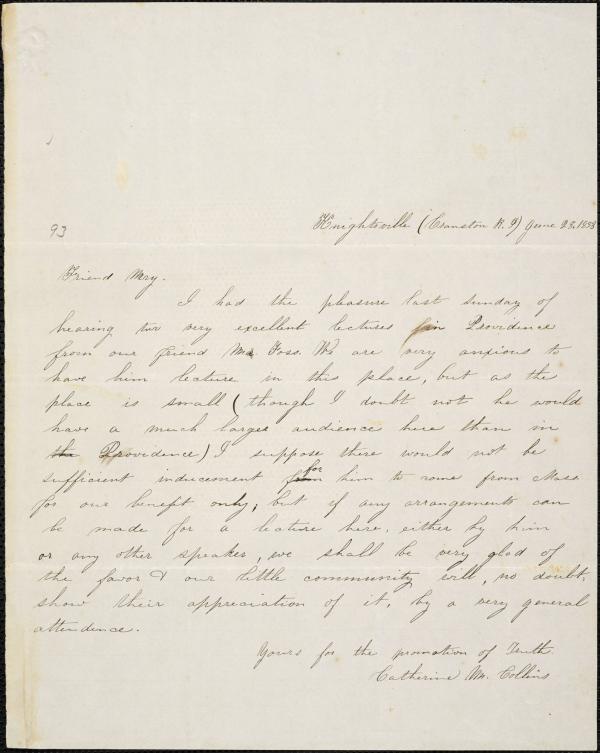 Knightsville (Cranston R. I) June 23, 1858
93
Friend Mry.
I had the pleasure last sunday of
hearing two very excellent lectures in Providence
from our friend Mr. Foss. We are very anxious to
have him lecture in this place, but as the
place is small (though I doubt not he would
have a much larger audience here than in
the Providence) I suppose there would not be
sufficient inducement for him to come from Mass
for our benefit only, but if any arrangements can
be made for a lecture here, either by him
or any other speaker, we shall be very glad of
the favor & our little community will, no doubt,
show their appreciation of it, by a very general
attendence.
Yours for the promotion of Truth
Catherine M. Collins